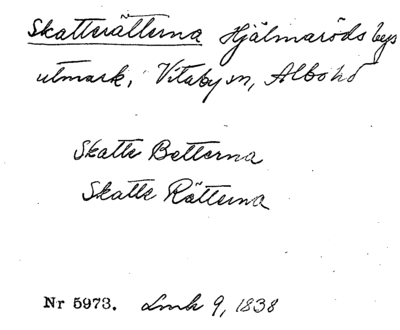 Skatterätterna Hjälmaröds bys
utmark, Vitaby sn, Albo hd
Skatte Betterna
Skatte Rätterna
Nr 5973. Lmk 9, 1838